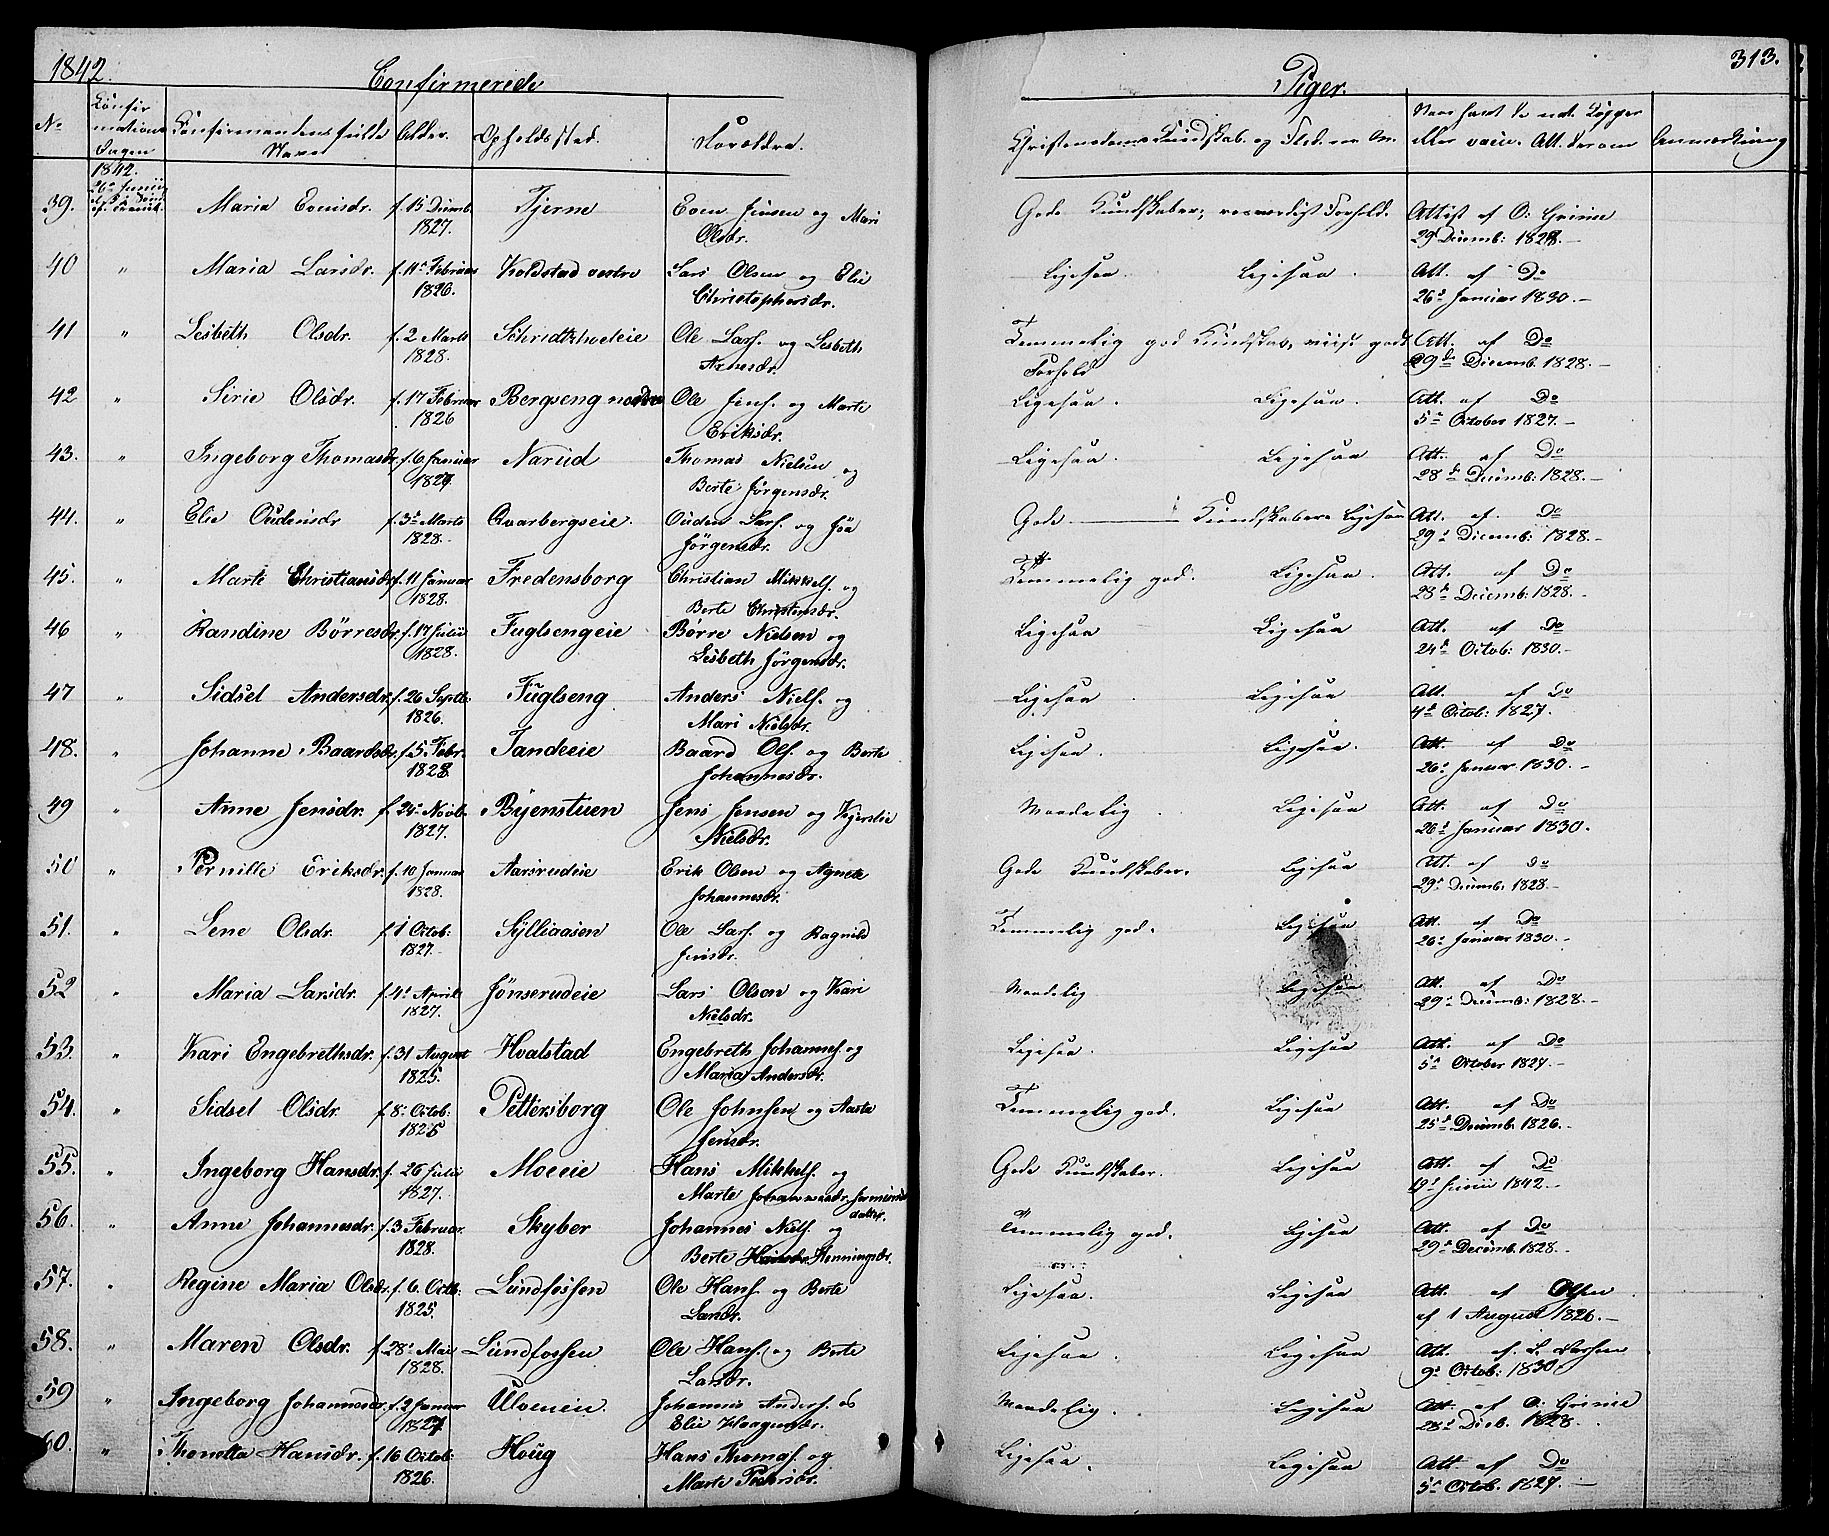 1842. Confirmerede Piger. 313.
No Confirmations Dagen Confirmandens fulde Navn Alder. Opholdssted. Forældre. Christendoms Kundskab og Flid Anmærkning
1842.
39. Maria Evensdr. f. 15 Decemb. 1827. Tjerne Even Jensen og Mari Olsdr. Gode Kundskaber, roesværdigt Forhold. Attest af O: Grimie 29 Decemb: 1828.
40 " Maria Larsdr. f. 11t Februar 1826. Koldstad vestre Lars Olsen og Elie Christophersdr. Ligesaa. Ligesaa. Att. af Do 26t Januar 1830.
41 " Lisbeth Olsdr. f. 2 Marts 1828. Schridtsholeie Ole Larss. og Lisbeth Arnesdr. Temmelig god Kundskab, viist godt Forhold Att. af Do 29de Decemb. 1828.
42 " Sirie Olsdr. f. 17 Februar 1826 Bergseng nordre Ole Jens. og Marte Eriksdr. Ligesaa. Ligesaa. Att. af Do 5t October 1827.
43. " Ingeborg Thomasdr. f. 6 Januar 1827 Narud Thomas Nielsen og Berte Jørgensdr. Ligesaa. Ligesaa Att. af Do 28de Decemb: 1828.
44. " Elie Oudensdr f. 3t Marts 1828. Qvarbergseie. Ouden Lars. og Joa Jørgensdr. Gode Kundskaber Ligesaa Att. af. Do 29t Decemb: 1828.
45. " Marte Christiansdr. f. 11 Januar 1828. Fredensborg Christian Mikkels. og Berte Christensdr. Temmelig god. Ligesaa. Att. af Do 28de Decemb. 1828.
46 " Randine Børresdr. f. 17 Julii 1828. Fuglsengeie Børre Nielsen og Lisbeth Jørgensdr. Ligesaa Ligesaa Att. af Do 24de Octob: 1830.
47 " Sidsel Andersdr. f. 26 Septb: 1826. Fuglseng Anders Niels. og Mari Nielsdr. Ligesaa Ligesaa Att. af Do 4de Octob: 1827.
48. " Johanne Baardsdr. f. 5 Febr. 1828. Tandeeie Baard Ols. og Berte Johannesdr. Ligesaa Ligesaa. Att. af Do 26t Januar 1830.
49 " Anne Jensdr. f. 24t Novb. 1827. Byenstuen Jens Jensen og Kjerstie Nielsdr. Maadelig. Ligesaa Att. af Do 26t Januar 1830.
50 " Pernille Eriksdr. f. 10 Januar 1828. Aarsrudeie Erik Olsen og Agnete Johannesdr. Gode Kundskaber. Ligesaa Att. af do 29t Decemb. 1828.
51. " Lene Olsdr. f. 1 Octob: 1827. Sylliaasen Ole Lars. og Ragnild Jensdr. Temmelig god. Ligesaa Att. af Do 26t Januar 1830.
52 " Maria Larsdr. f. 4t April 1827. Jønserudeie Lars Olson og Kari Nielsdr. Maadelig Ligesaa Att. af Do 29t Decemb: 1828.
53. " Kari Engebrethsdr. f. 31 August 1825. Hvalstad Engebreth Johannes. og Maria Andersdr. Ligesaa. Ligesaa Att. af Do 5t October 1827.
54. " Sidsel Olsdr. f. 8t Octob: 1825 Pettersborg Ole Johnsen og Aaste Jensdr. Temmelig god. Ligesaa Att. af Do 25de Decemb. 1826.
55. " Ingeborg Hansdr. f. 26 Julii 1827. Moeeie Hans Mikkels. og Marte Johannesdr. datter. Gode Kundskaber. Ligesaa Att. af Do 19t Junii 1842.
56. " Anne Johannesdr. f. 3 Februar 1828. Skyber Johannes Niels. og Berte Hansdr. Henningsdr. Temmelig god. Ligesaa Att. af Do 29t Decemb. 1828.
57. " Regine Maria Olsdr. f. 6 Octb: 1825. Lundfossen Ole Hans. og Berte Larsdr. Ligesaa. Ligesaa Att. af Olsen af 1 August 1826.
58. " Maren Olsdr. f. 28t Mai 1828. Lundfossen Ole Hans. og Berte Larsdr. Ligesaa. Ligesaa Att. af L. Larsen 9t Octob: 1830
59 " Ingeborg Johannesdr. f. 2 Januar 1827 Ulveneie. Johannes Anders. og Elie Haagensdr. Maadelig. Ligesaa Att. af O: Grimie 28t Decb. 1828.
60. " Thonette Hansdr. f. 16 Octob: 1826. Houg Hans Thomas. og Marte Pedersdr. Ligesaa. Ligesaa Att af Do 5t Octob. 1827.